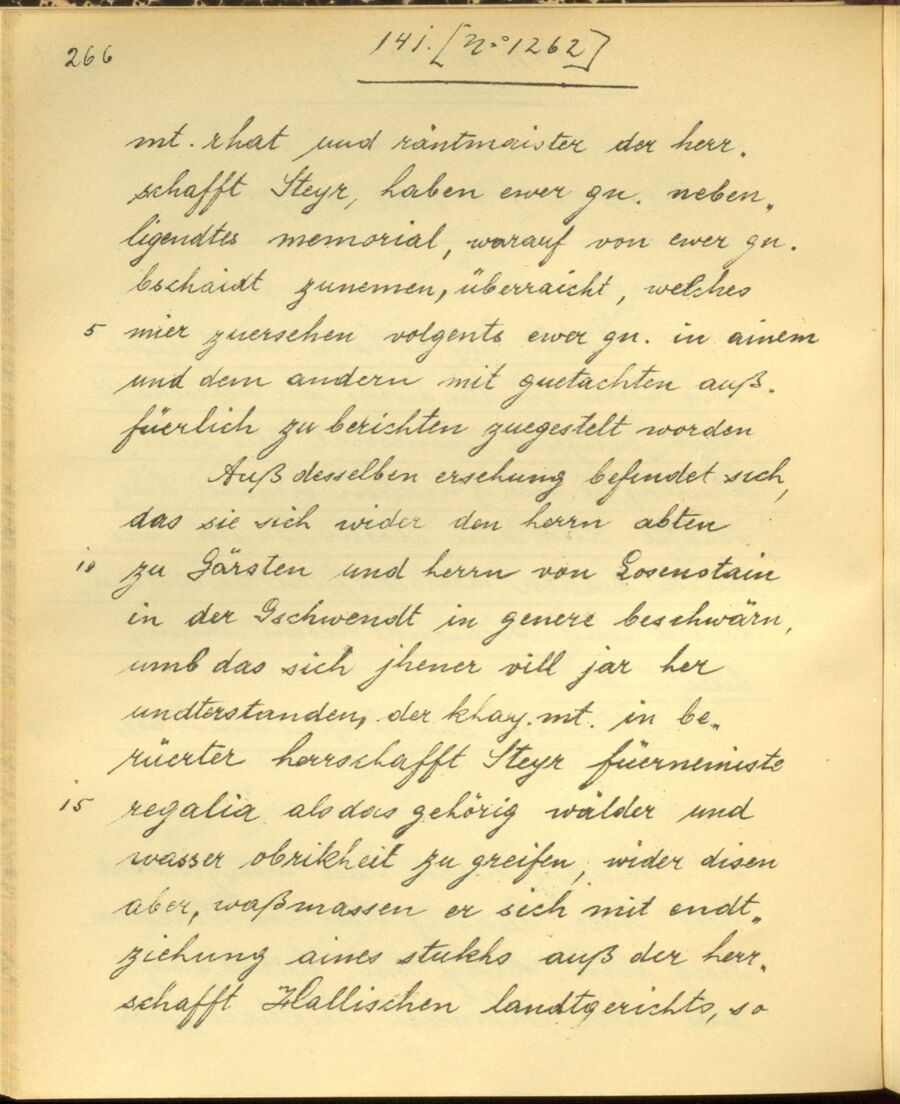 266
141. [N:o 1262]
mt. rhat und räntmaister der herr„
schafft Steyr, haben ewer gn. neben„
ligendtes memorial, warauf von ewer gn.
bschaidt zunemen, überraicht, welches
5 mier zuersehen volgents ewer gn. in ainem
und dem andern mit guetachten auß„
füerlich zu berichten zuegestelt worden
Auß desselben ersehung befindet sich,
das sie sich wider den herrn abten
10 zu Gärsten und herrn von Losenstain
in der Gschwendt in genere beschwärn,
umb das sich jhener vill jar her
undterstanden, der khay. mt. in be„
rüerter herrschafft Steyr füernemiste
15 regalia als das gehörig wälder und
wasser obrikheit zu greifen, wider disen
aber, waßmassen er sich mit endt„
ziehung aines stukhs auß der herr„
schafft Hallischen landtgerichts, so